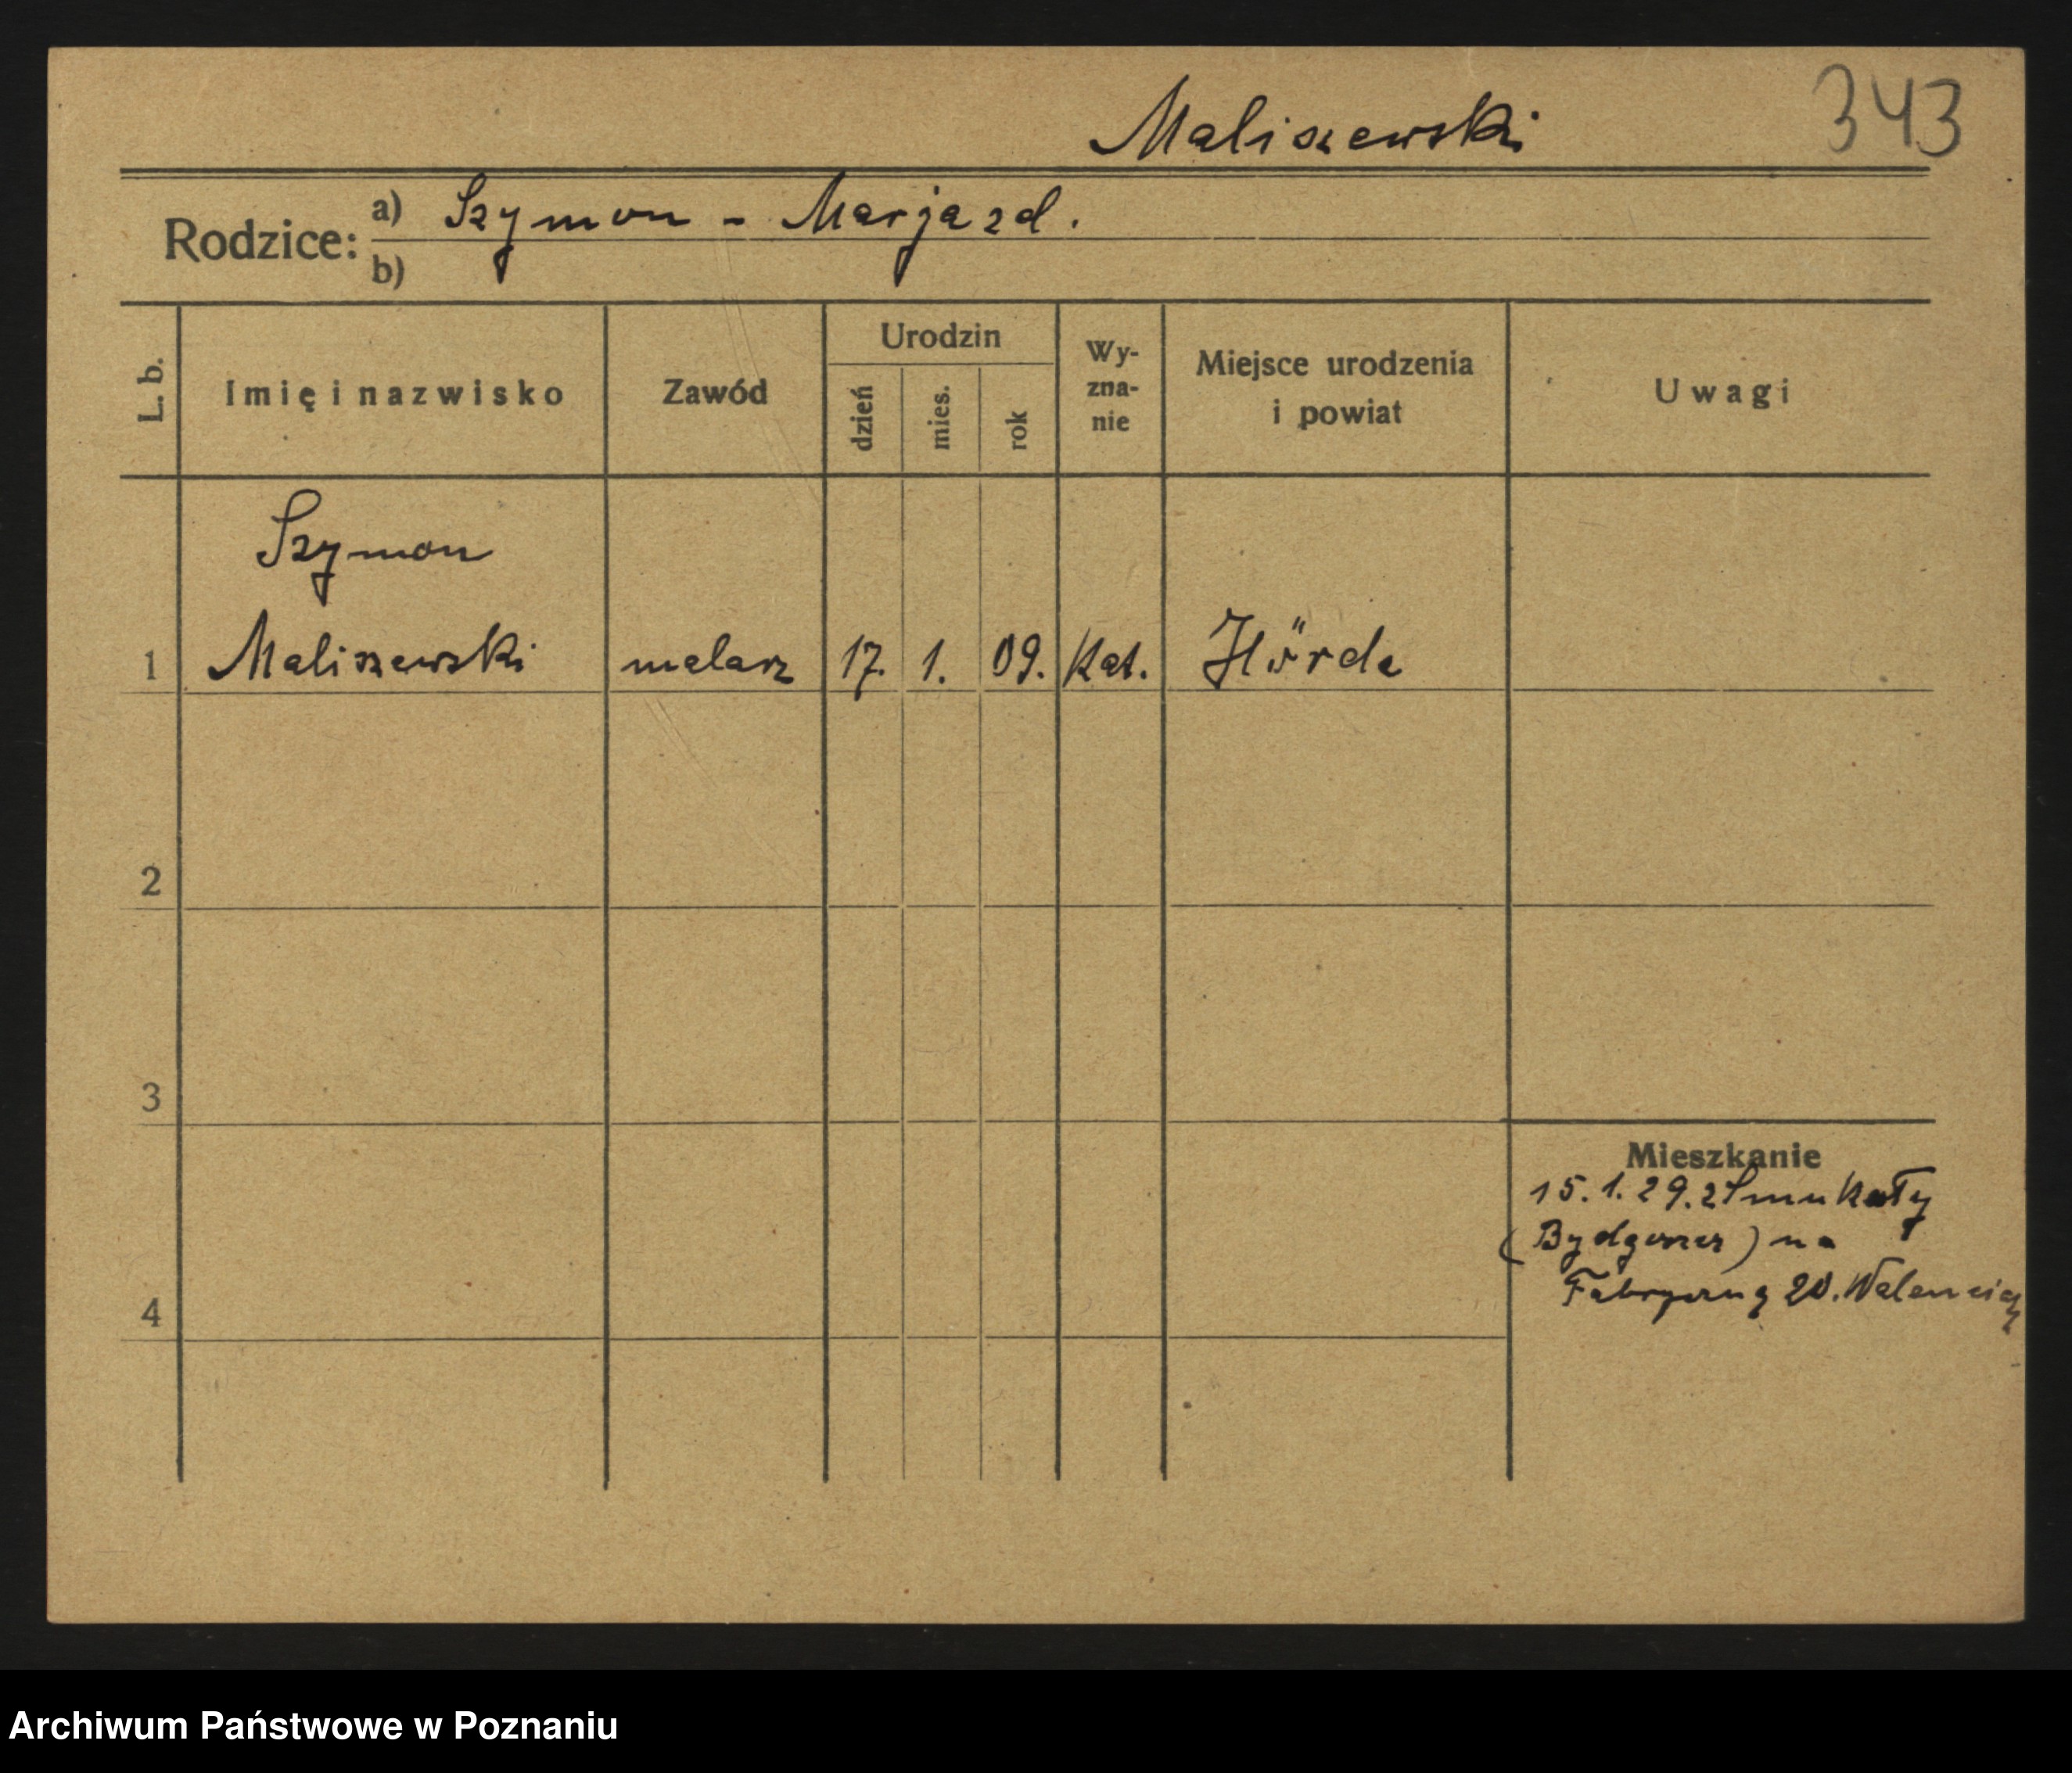 343
Maliszewski
Rodzice: a) Szymon - Marja zd.
b)
L. b. Imię i nazwisko Zawód Urodzin dzień mies. rok Wy-zna-nie Miejsce urodzenia i powiat Uwagi
Szymon
1 Maliszewski malarz 17. 1. 09. Kat. Hörde
2
3
Mieszkanie
15.1.29. z Smukały
(Bydgoszcz) na
4 Fabryczną 20.
Archiwum Państwowe w Poznaniu